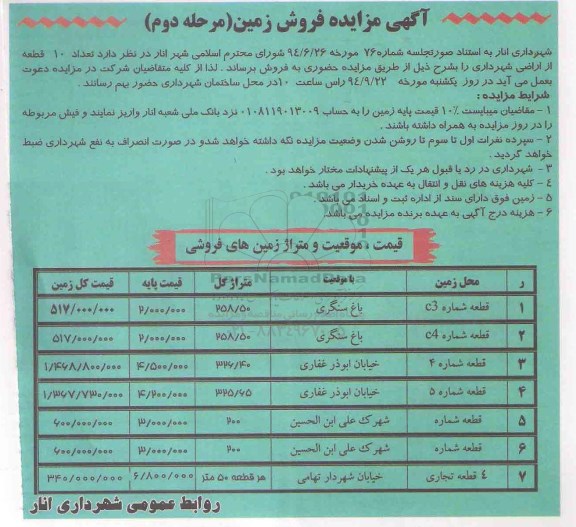 آگهی مزایده فروش زمین(مرحله دوم)
شهرداری انار به استناد صورتجلسه شماره۷۶ مورخه ۹۴/۶/۲۶ شورای محترم اسلامی شهر انار در نظر دارد تعداد ۱۰ قطعه
از اراضی شهرداری را بشرح ذیل از طریق مزایده حضوری به فروش برساند . لذا از کلیه متقاضیان شرکت در مزایده دعوت
بعمل می آید در روز یکشنبه مورخه ۹۴/۹/۲۲ راس ساعت ۱۰در محل ساختمان شهرداری حضور بهم رسانند .
شرایط مزایده :
۱ – مقاضیان میبایست ۱۰٪ قیمت پایه زمین را به حساب ۰۱۰۸۱۱۹۰۱۳۰۰۹ نزد بانک ملی شعبه انار واریز نمایند و فیش مربوطه
را در روز مزایده به همراه داشته باشند .
۲ – سپرده نفرات اول تا سوم تا روشن شدن وضعیت مزایده نگه داشته خواهد شدو در صورت انصراف به نفع شهرداری ضبط
خواهد گردید .
۳ – شهرداری در رد یا قبول هر یک از پیشنهادات مختار خواهد بود .
۴ – کلیه هزینه های نقل و انتقال به عهده خریدار می باشد .
۵ – زمین فوق دارای سند از اداره ثبت و اسناد می باشد
۶ – هزینه درج آگهی به عهده برنده مزایده می باشد.
قیمت ، موقعیت و متراژ زمین های فروشی
ر محل زمین یا موقعیت متراژ کل قیمت پایه قیمت کل زمین
۱ قطعه شماره c3 باغ سنگری ۲۵۸/۵۰ ۲/۰۰۰/۰۰۰ ۵۱۷/۰۰۰/۰۰۰
۲ قطعه شماره c4 باغ سنگری ۲۵۸/۵۰ ۲/۰۰۰/۰۰۰ ۵۱۷/۰۰۰/۰۰۰
۳ قطعه شماره ۴ خیابان ابوذر غفاری ۳۲۶/۴۰ ۴/۵۰۰/۰۰۰ ۱/۴۶۸/۸۰۰/۰۰۰
۴ قطعه شماره ۵ خیابان ابوذر غفاری ۳۲۵/۶۵ ۴/۲۰۰/۰۰۰ ۱/۳۶۷/۷۳۰/۰۰۰
۵ قطعه شماره شهرک علی ابن الحسین ۲۰۰ ۳/۰۰۰/۰۰۰ ۶۰۰/۰۰۰/۰۰۰
۶ قطعه شماره شهرک علی ابن الحسین ۲۰۰ ۳/۰۰۰/۰۰۰ ۶۰۰/۰۰۰/۰۰۰
۷ ٤ قطعه تجاری خیابان شهردار تهامی هر قطعه ۵۰ متر ۶/۸۰۰/۰۰۰ ۳۴۰/۰۰۰/۰۰۰
روابط عمومی شهرداری انار